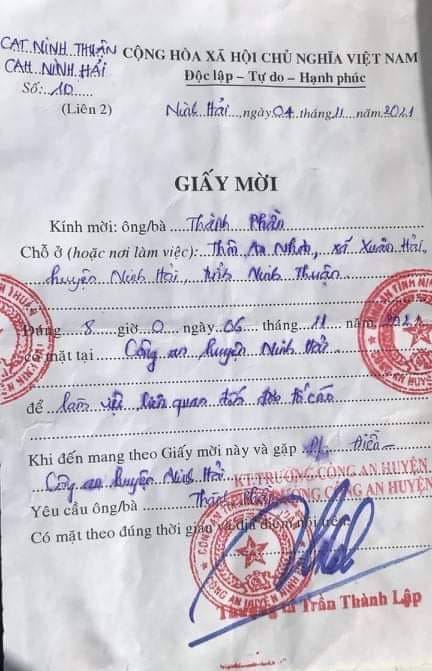 CAT. NINH THUẬN
CAH. NINH HẢI
CỘNG HÒA XÃ HỘI CHỦ NGHĨA VIỆT NAM
Độc lập – Tự do – Hạnh phúc
Số: 10
(Liên 2)
Ninh Hải, ngày 04 tháng 11 năm 2021
GIẤY MỜI
Kính mời: ông/bà Thành Phần
Chỗ ở (hoặc nơi làm việc): Thôn An Nhơn, xã Xuân Hải,
huyện Ninh Hải, tỉnh Ninh Thuận
Đúng 8 giờ 0 ngày 06 tháng 11 năm 2021
có mặt tại Công an huyện Ninh Hải
để làm việc liên quan đến đơn tố cáo
Khi đến mang theo Giấy mời này và gặp Điền
Công an huyện Ninh Hải
KT.TRƯỞNG CÔNG AN HUYỆN
Yêu cầu ông/bà Thành Phần
CÔNG AN HUYỆN
Có mặt theo đúng thời gian và địa điểm nói trên
CÔNG AN HUYỆN NINH
Trần Thành Lập